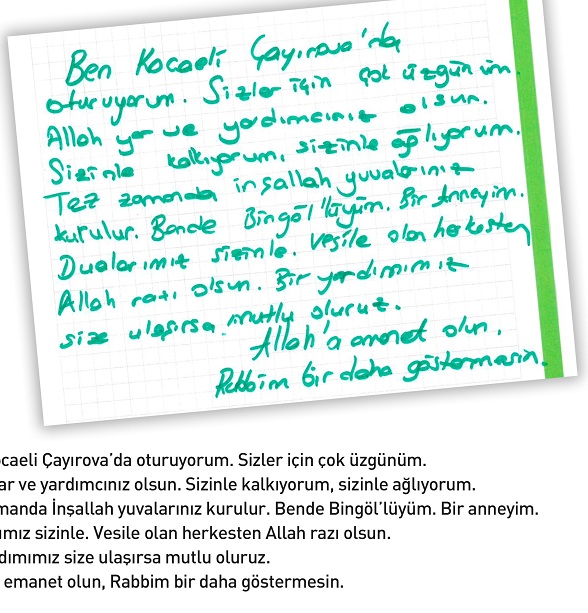 Ben Kocaeli Çayırova'da
oturuyorum. Sizler için çok üzgünüm.
Allah yar ve yardımcınız olsun.
Sizinle kalkıyorum, sizinle ağlıyorum.
Tez zamanda inşallah yuvalarınız
kurulur. Bende Bingöl'lüyüm. Bir Anneyim.
Dualarımız sizinle. Vesile olan herkesten
Allah razı olsun. Bir yardımımız
size ulaşırsa mutlu oluruz.
Allah'a emanet olun.
Rabbim bir daha göstermesin.
ocaeli Çayırova'da oturuyorum. Sizler için çok üzgünüm.
ar ve yardımcınız olsun. Sizinle kalkıyorum, sizinle ağlıyorum.
manda İnşallah yuvalarınız kurulur. Bende Bingöl'lüyüm. Bir anneyim.
ımız sizinle. Vesile olan herkesten Allah razı olsun.
dımımız size ulaşırsa mutlu oluruz.
emanet olun, Rabbim bir daha göstermesin.